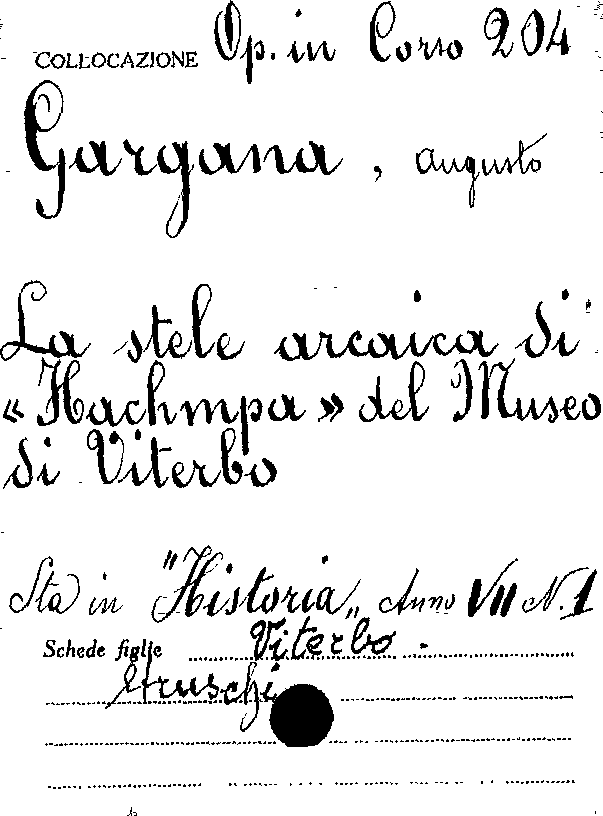 COLLOCAZIONE Op. in Corso 204
Gargana, Augusto
La stele arcaica di
«Hachmpa» del Museo
di Viterbo
Sta in "Historia„ Anno VII N. 1
Schede figlie Viterbo.
Etruschi